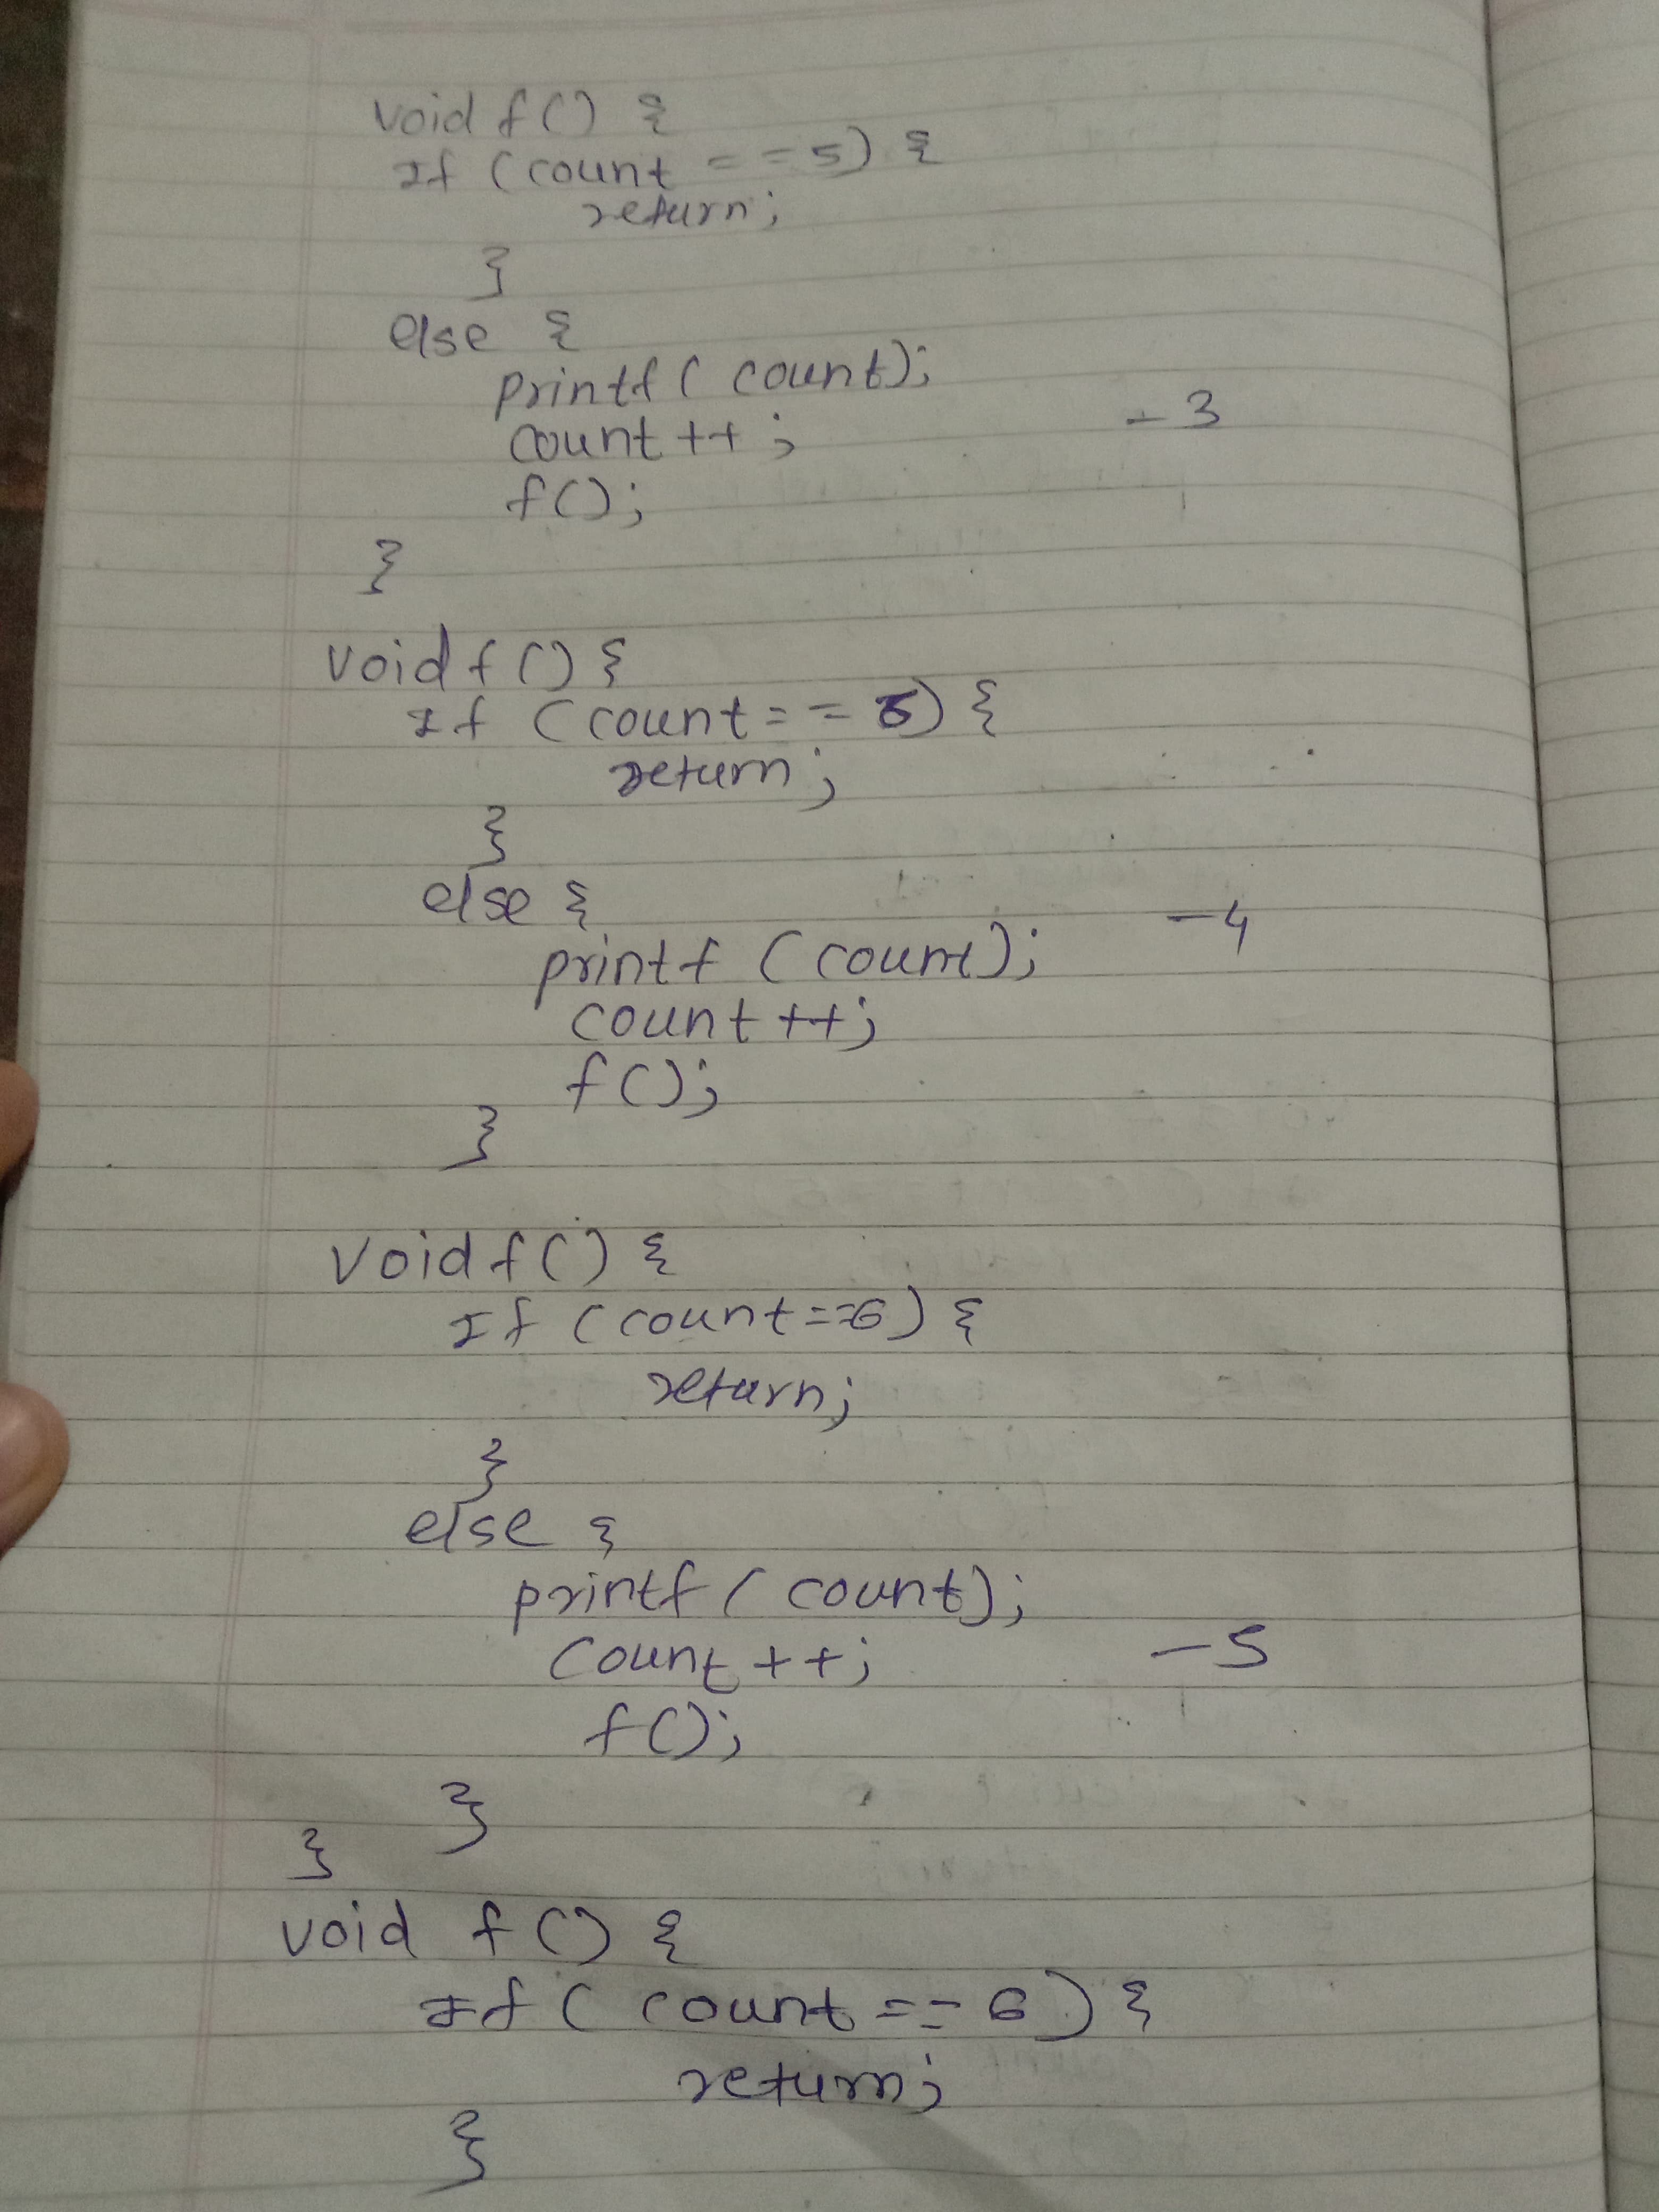 void f() {
If (count = = 5) {
return;
}
else {
printf( count);
count ++;
f();
- 3
}
void f() {
If (count = = 5) {
return;
}
else {
printf (count);
- 4
count ++;
f();
}
void f() {
If (count==6) {
return;
}
else {
printf( count);
count ++;
- 5
f();
}
}
void f() {
If ( count == 6) {
return;
}